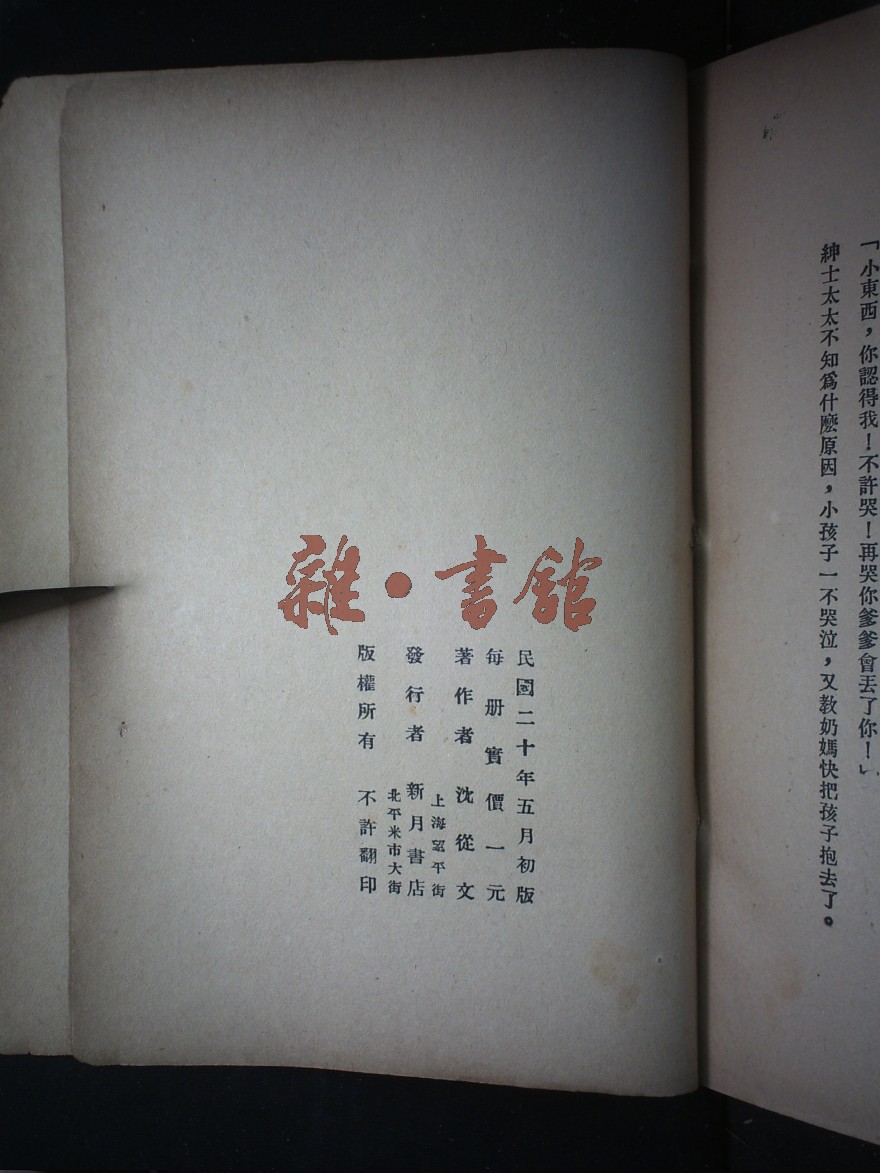 「小東西，你認得我！不許哭！再哭你爹爹會丟了你！」
紳士太太不知爲什麽原因，小孩子一不哭泣，又教奶媽快把孩子抱去了。
雜·書館
民國二十年五月初版
每册實價一元
著作者 沈從文
上海望平街
發行者 新月書店
北平米市大街
版權所有 不許翻印